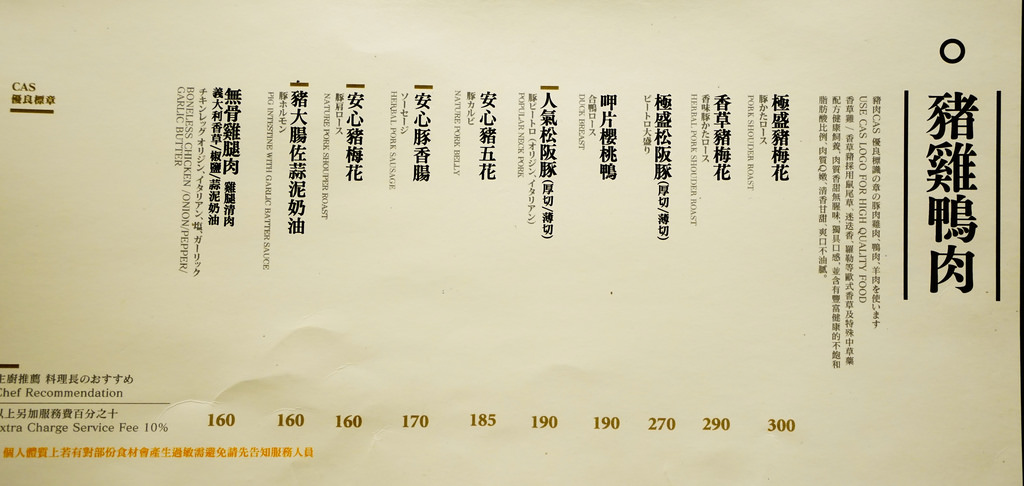 豬雞鴨肉
豬肉CAS 優良標識の章の豚肉雞肉、鴨肉、羊肉を使います
USE CAS LOGO FOR HIGH QUALITY FOOD
香草雞 / 香草豬採用鼠尾草、迷迭香、羅勒等歐式香草及特殊中草藥
配方健康飼養，肉質香甜無腥味，獨具口感，並含有豐富健康的不飽和
脂肪酸比例，肉質Q嫩、清香甘甜、爽口不油膩。
極盛豬梅花
豚かたロース
PORK SHOUDER ROAST
300
香草豬梅花
香味豚かたロース
HERBAL PORK SHOUDER ROAST
290
極盛松阪豚(厚切/薄切)
ピートロ大盛り
270
呷片櫻桃鴨
合鴨ロース
DUCK BREAST
190
人氣松阪豚(厚切/薄切)
豚ピートロ(オリジン、イタリアン)
POPULAR NECK PORK
190
安心豬五花
豚カルビ
NATURE PORK BELLY
185
安心豚香腸
ソーセージ
HERBAL PORK SAUSAGE
170
安心豬梅花
豚肩ロース
NATURE PORK SHOUPER ROAST
160
豬大腸佐蒜泥奶油
豚ホルモン
PIG INTESTINE WITH GARLIC BATTER SAUCE
160
無骨雞腿肉 雞腿清肉
義大利香草/椒鹽/蒜泥奶油
チキンレッグ オリジン、イタリアン、塩、ガーリック
BONELESS CHICKEN /ONION/PEPPER/
GARLIC BUTTER
160
CAS
優良標章
主廚推薦 料理長のおすすめ
Chef Recommendation
以上另加服務費百分之十
Extra Charge Service Fee 10%
個人體質上若有對部份食材會產生過敏需避免請先告知服務人員